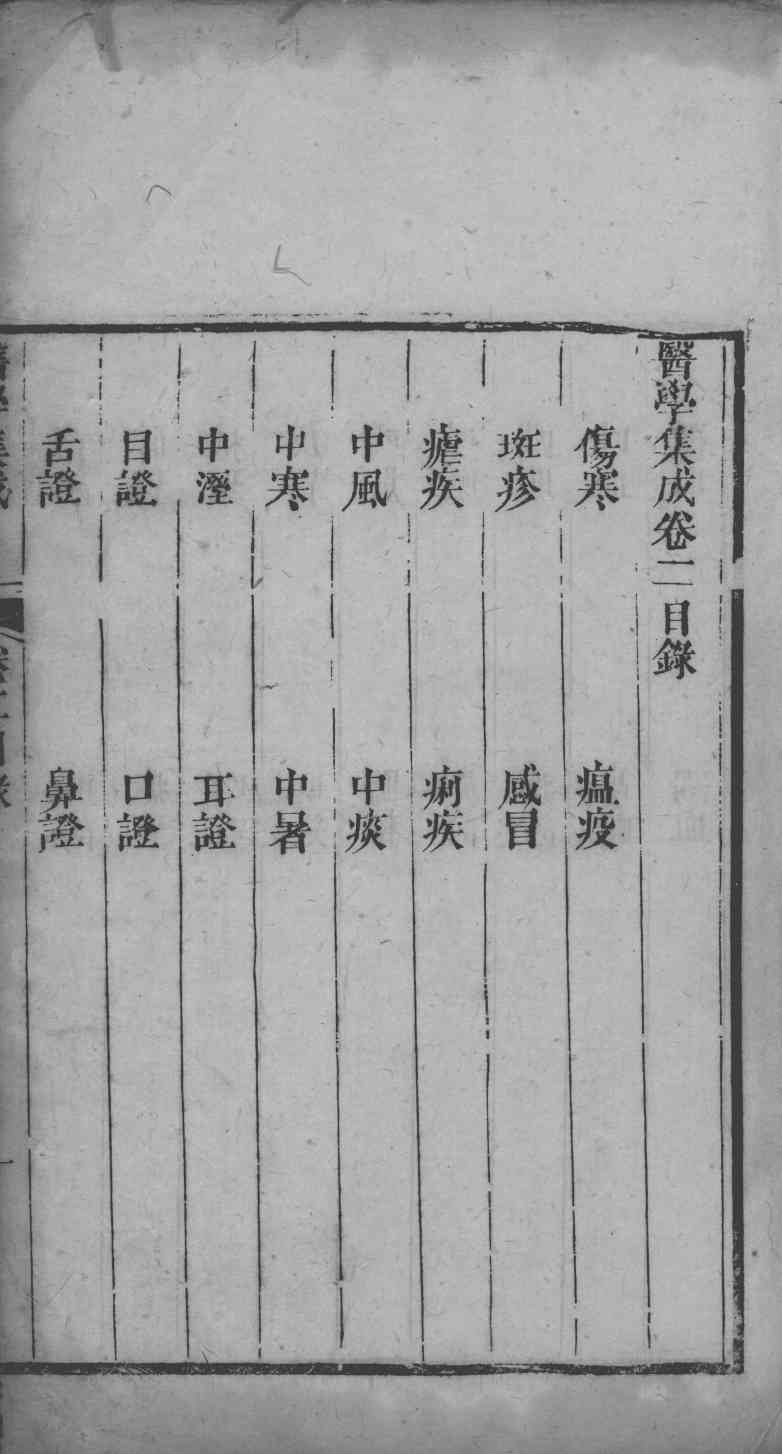 醫學集成卷二 目錄
傷寒 瘟疫
斑疹 感冒
瘧疾 痢疾
中風 中痰
中寒 中暑
中溼 耳證
目證 口證
舌證 鼻證